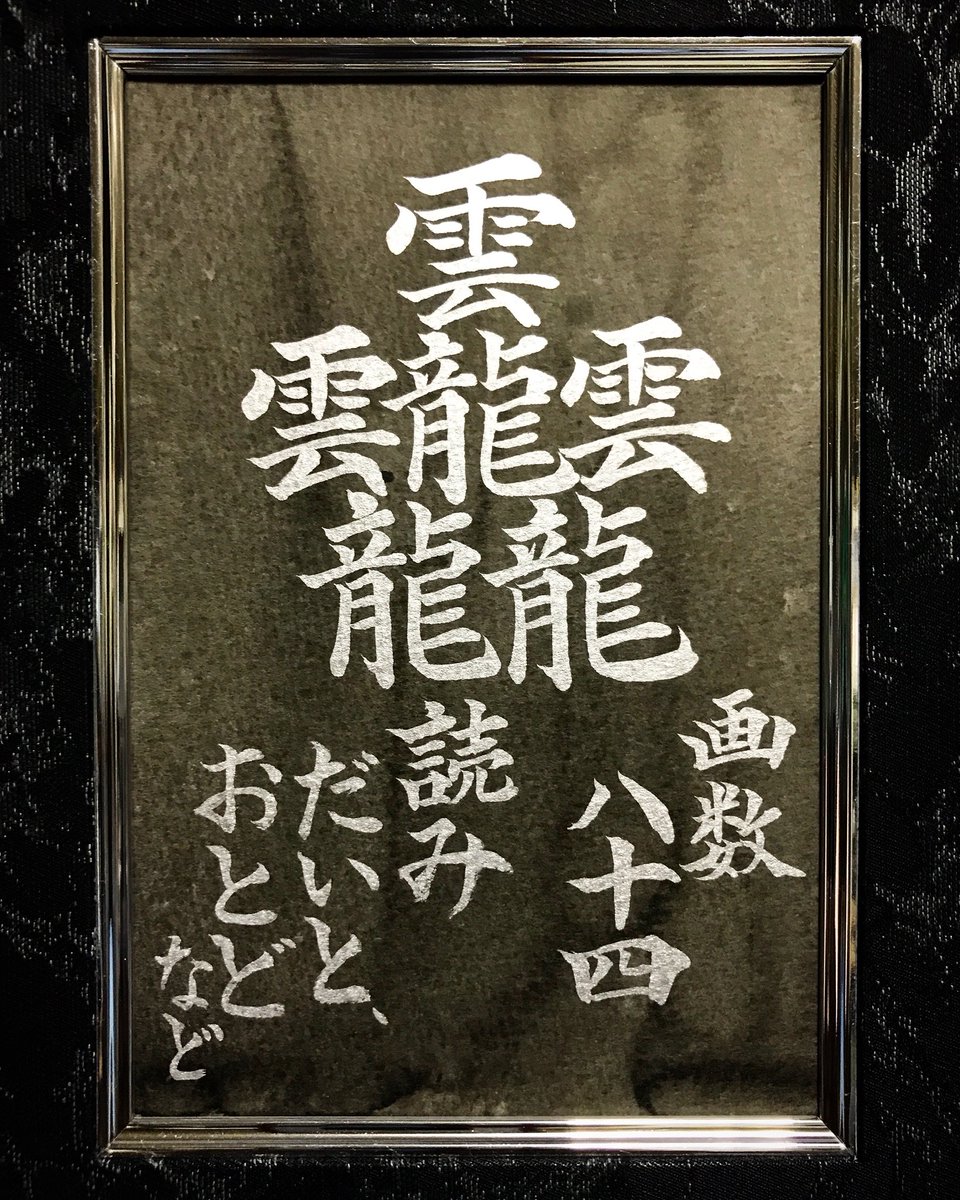 雲
雲龍雲
龍龍
画数
八十四
読み
だいと、
おとど
など